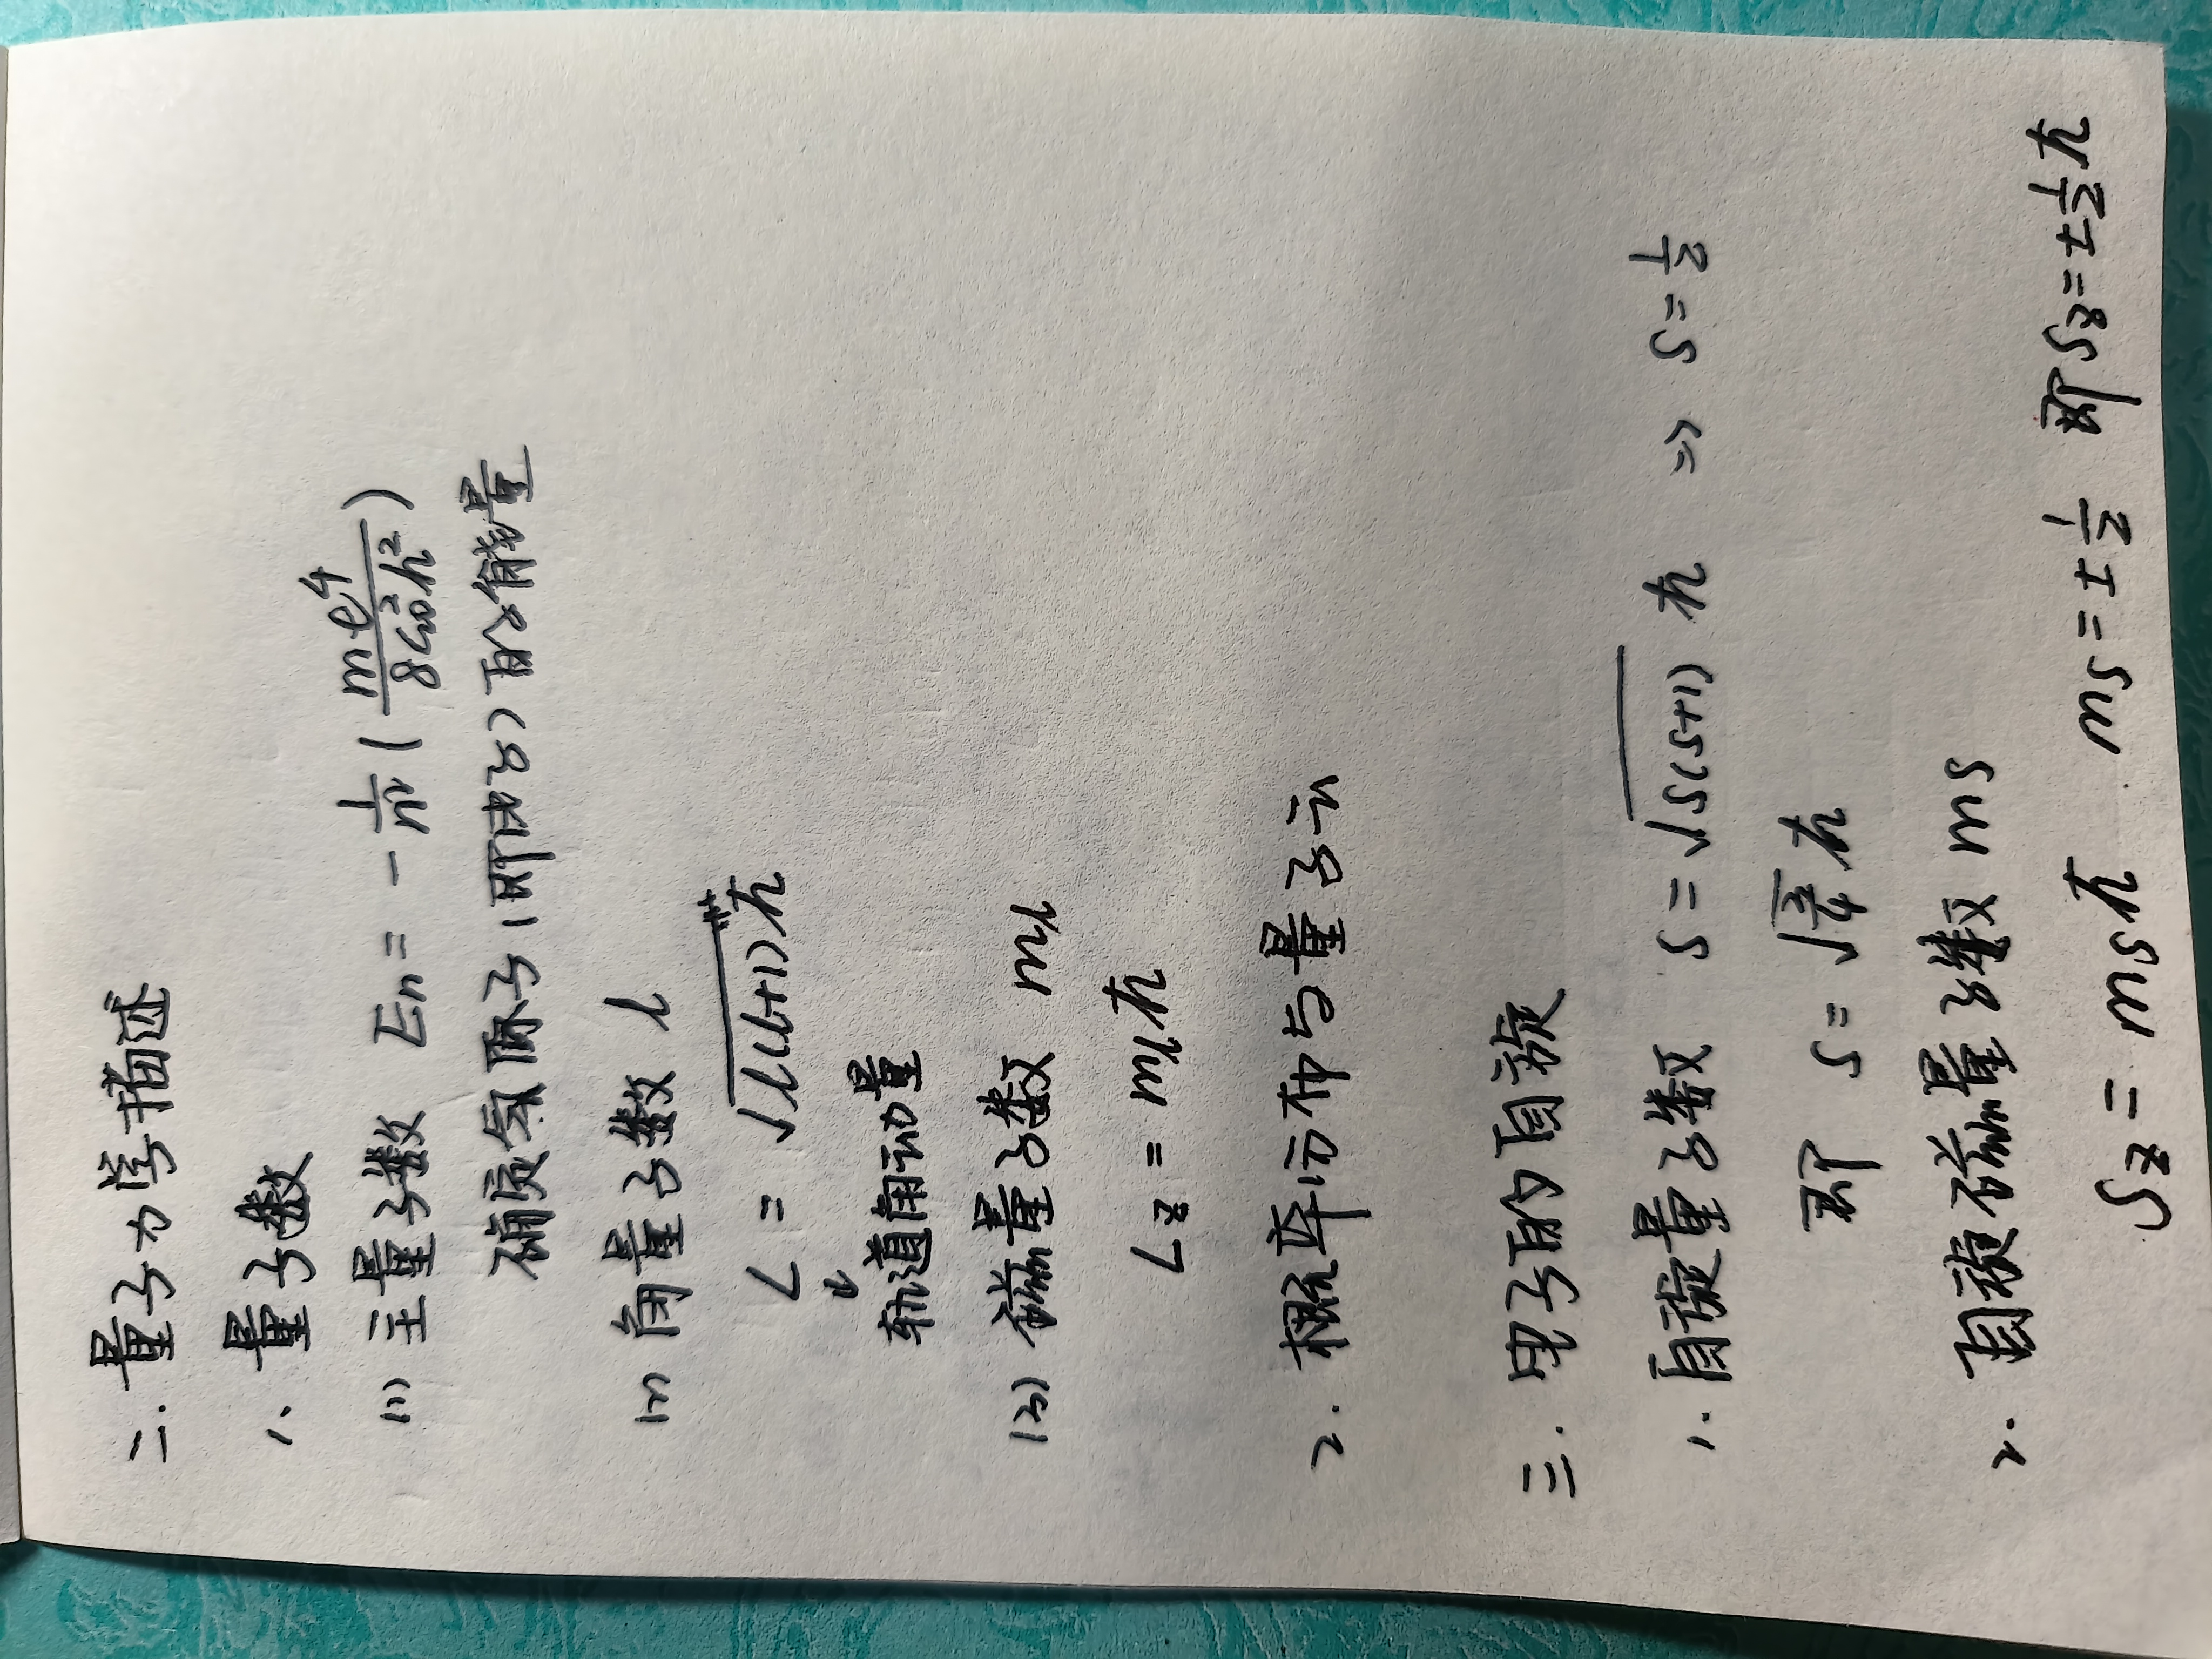 二. 量子力学描述
1. 量子数
(1) 主量子数 En = -1/n² (me⁴/8ε₀²h²)
确定氢原子(即电子)的能量
(2) 角量子数 l
L = √l(l+1) ħ
↓
轨道角动量
(3) 磁量子数 ml
Lz = mlħ
2. 概率分布与量子云
三. 电子的自旋
1. 自旋量子数 S = √s(s+1) ħ ⇒ s = 1/2
即 S = √3/4 ħ
2. 自旋磁量子数 ms
Sz = msħ ms = ±1/2 即 Sz = ±1/2 ħ